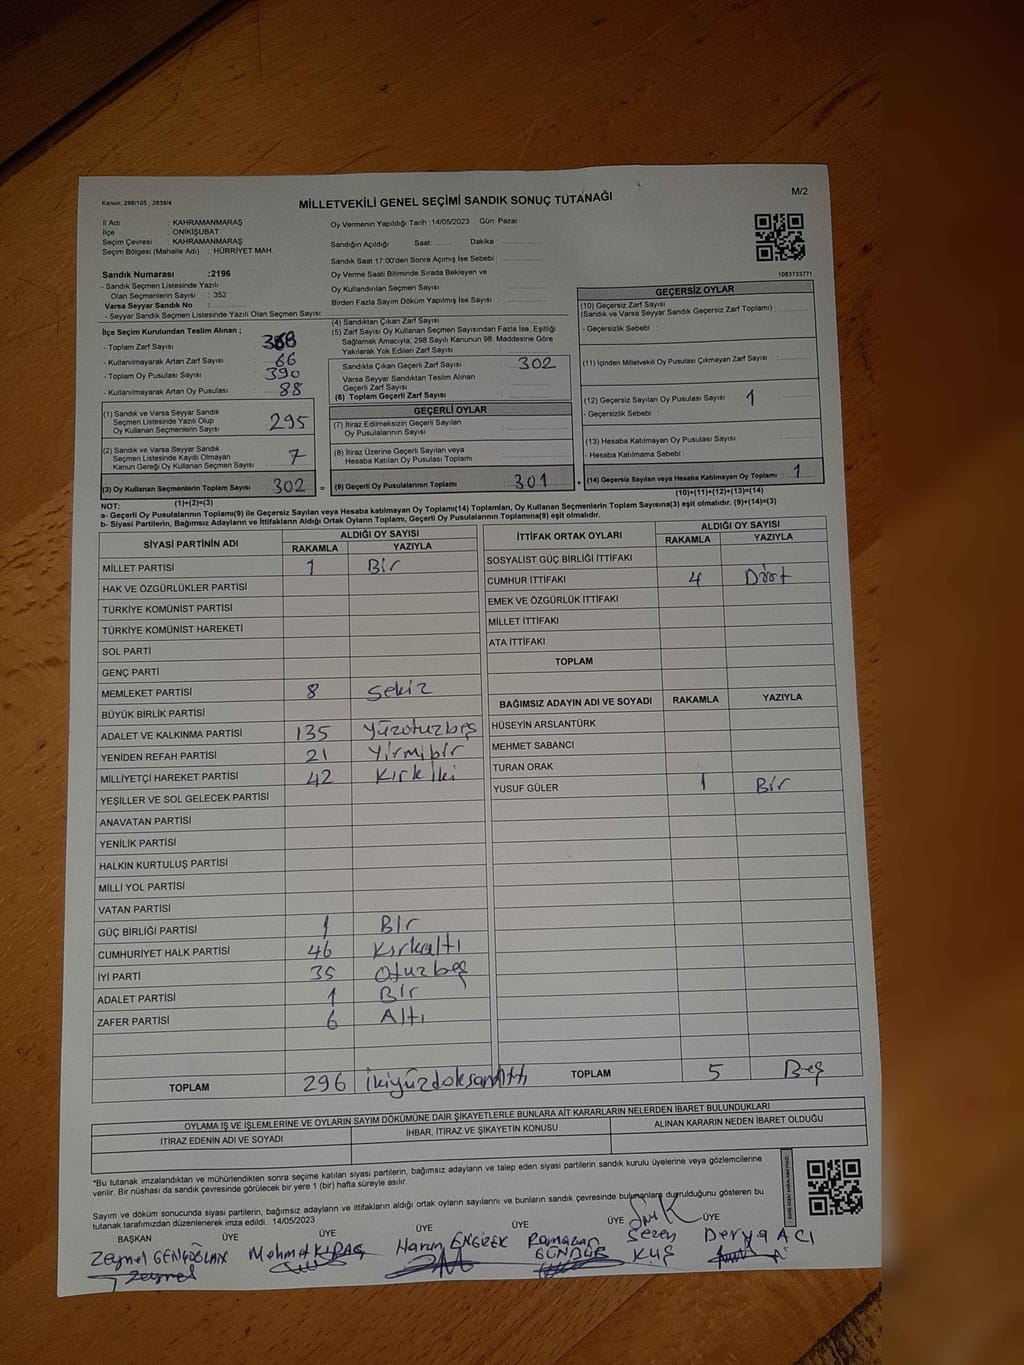 Kanun: 298/105 , 2839/4
MİLLETVEKİLİ GENEL SEÇİMİ SANDIK SONUÇ TUTANAĞI
M/2
İl Adı : KAHRAMANMARAŞ
İlçe : ONİKİŞUBAT
Seçim Çevresi : KAHRAMANMARAŞ
Seçim Bölgesi (Mahalle Adı) : HÜRRİYET MAH
Sandık Numarası :2196
- Sandık Seçmen Listesinde Yazılı
Olan Seçmenlerin Sayısı : 352
Varsa Seyyar Sandık No :
- Seyyar Sandık Seçmen Listesinde Yazılı Olan Seçmen Sayısı
Oy Vermenin Yapıldığı Tarih :14/05/2023 Gün: Pazar
Sandığın Açıldığı Saat: Dakika :
Sandık Saat 17:00'den Sonra Açımış İse Sebebi :
Oy Verme Saati Bitiminde Sırada Bekleyen ve
Oy Kullandırılan Seçmen Sayısı :
Birden Fazla Sayım Döküm Yapılmış İse Sayısı :
1083733771
İlçe Seçim Kurulundan Teslim Alınan ;
- Toplam Zarf Sayısı :
- Kullanılmayarak Artan Zarf Sayısı : 66
- Toplam Oy Pusulası Sayısı : 390
- Kullanılmayarak Artan Oy Pusulası : 88
(1) Sandık ve Varsa Seyyar Sandık
Seçmen Listesinde Yazılı Olup
Oy Kullanan Seçmenlerin Sayısı : 295
(2) Sandık ve Varsa Seyyar Sandık
Seçmen Listesinde Kayıtlı Olmayan
Kanun Gereği Oy Kullanan Seçmen Sayısı : 7
(3) Oy Kullanan Seçmenlerin Toplam Sayısı : 302 =
(1)+(2)=(3)
(4) Sandıktan Çıkan Zarf Sayısı
(5) Zarf Sayısı Oy Kullanan Seçmen Sayısından Fazla İse, Eşitliği
Sağlamak Amacıyla, 298 Sayılı Kanunun 98. Maddesine Göre
Yakılarak Yok Edilen Zarf Sayısı :
Sandıkta Çıkan Geçerli Zarf Sayısı : 302
Varsa Seyyar Sandıktan Teslim Alınan
Geçerli Zarf Sayısı :
(6) Toplam Geçerli Zarf Sayısı :
GEÇERLİ OYLAR
(7) İtiraz Edilmeksizin Geçerli Sayılan
Oy Pusulalarının Sayısı :
(8) İtiraz Üzerine Geçerli Sayılan veya
Hesaba Katılan Oy Pusulası Toplamı :
(9) Geçerli Oy Pusulalarının Toplamı : 301 +
GEÇERSİZ OYLAR
(10) Geçersiz Zarf Sayısı
(Sandık ve Varsa Seyyar Sandık Geçersiz Zarf Toplamı) :
- Geçersizlik Sebebi :
(11) İçinden Milletvekili Oy Pusulası Çıkmayan Zarf Sayısı :
(12) Geçersiz Sayılan Oy Pusulası Sayısı : 1
- Geçersizlik Sebebi :
(13) Hesaba Katılmayan Oy Pusulası Sayısı :
- Hesaba Katılmama Sebebi :
(14) Geçersiz Sayılan veya Hesaba Katılmayan Oy Toplamı : 1
(10)+(11)+(12)+(13)=(14)
NOT:
a- Geçerli Oy Pusulalarının Toplamı(9) ile Geçersiz Sayılan veya Hesaba katılmayan Oy Toplam(14) Toplamları, Oy Kullanan Seçmenlerin Toplam Sayısına(3) eşit olmalıdır. (9)+(14)=(3)
b- Siyasi Partilerin, Bağımsız Adayların ve İttifakların Aldığı Ortak Oyların Toplamı, Geçerli Oy Pusulalarının Toplamına(9) eşit olmalıdır.
SİYASİ PARTİNİN ADI ALDIĞI OY SAYISI
RAKAMLA YAZIYLA
MİLLET PARTİSİ 1 Bir
HAK VE ÖZGÜRLÜKLER PARTİSİ
TÜRKİYE KOMÜNİST PARTİSİ
TÜRKİYE KOMÜNİST HAREKETİ
SOL PARTİ
GENÇ PARTİ
MEMLEKET PARTİSİ 8 Sekiz
BÜYÜK BİRLİK PARTİSİ
ADALET VE KALKINMA PARTİSİ 135 Yüzotuzbeş
YENİDEN REFAH PARTİSİ 21 Yirmibir
MİLLİYETÇİ HAREKET PARTİSİ 42 Kırkiki
YEŞİLLER VE SOL GELECEK PARTİSİ
ANAVATAN PARTİSİ
YENİLİK PARTİSİ
HALKIN KURTULUŞ PARTİSİ
MİLLİ YOL PARTİSİ
VATAN PARTİSİ
GÜÇ BİRLİĞİ PARTİSİ 1 Bir
CUMHURİYET HALK PARTİSİ 46 Kırkaltı
İYİ PARTİ 35 Otuzbeş
ADALET PARTİSİ 1 Bir
ZAFER PARTİSİ 6 Altı
TOPLAM 296 İkiyüzdoksanAltı
İTTİFAK ORTAK OYLARI ALDIĞI OY SAYISI
RAKAMLA YAZIYLA
SOSYALİST GÜÇ BİRLİĞİ İTTİFAKI
CUMHUR İTTİFAKI 4 Dört
EMEK VE ÖZGÜRLÜK İTTİFAKI
MİLLET İTTİFAKI
ATA İTTİFAKI
TOPLAM
BAĞIMSIZ ADAYIN ADI VE SOYADI RAKAMLA YAZIYLA
HÜSEYİN ARSLANTÜRK
MEHMET SABANCI
TURAN ORAK
YUSUF GÜLER 1 Bir
TOPLAM 5 Beş
OYLAMA İŞ VE İŞLEMLERİNE VE OYLARIN SAYIM DÖKÜMÜNE DAİR ŞİKAYETLERLE BUNLARA AİT KARARLARIN NELERDEN İBARET BULUNDUKLARI
İTİRAZ EDENİN ADI VE SOYADI İHBAR, İTİRAZ VE ŞİKAYETİN KONUSU ALINAN KARARIN NEDEN İBARET OLDUĞU
*Bu tutanak imzalandıktan ve mühürlendikten sonra seçime katılan siyasi partilerin, bağımsız adayların ve talep eden siyasi partilerin sandık kurulu üyelerine veya gözlemcilerine
verilir. Bir nüshası da sandık çevresinde görülecek bir yere 1 (bir) hafta süreyle asılır.
Sayım ve döküm sonucunda siyasi partilerin, bağımsız adayların ve ittifakların aldığı ortak oyların sayılarını ve bunların sandık çevresinde bulunanlara duyrulduğunu gösteren bu
tutanak tarafımızdan düzenlenerek imza edildi. 14/05/2023
BAŞKAN ÜYE ÜYE ÜYE ÜYE ÜYE
Zeynel GENÇOĞLAN Mehmet KIRAÇ Harun ENGİZEK Ramazan GÜNDÜR Sezen KUŞ Derya ACI
Zeynel